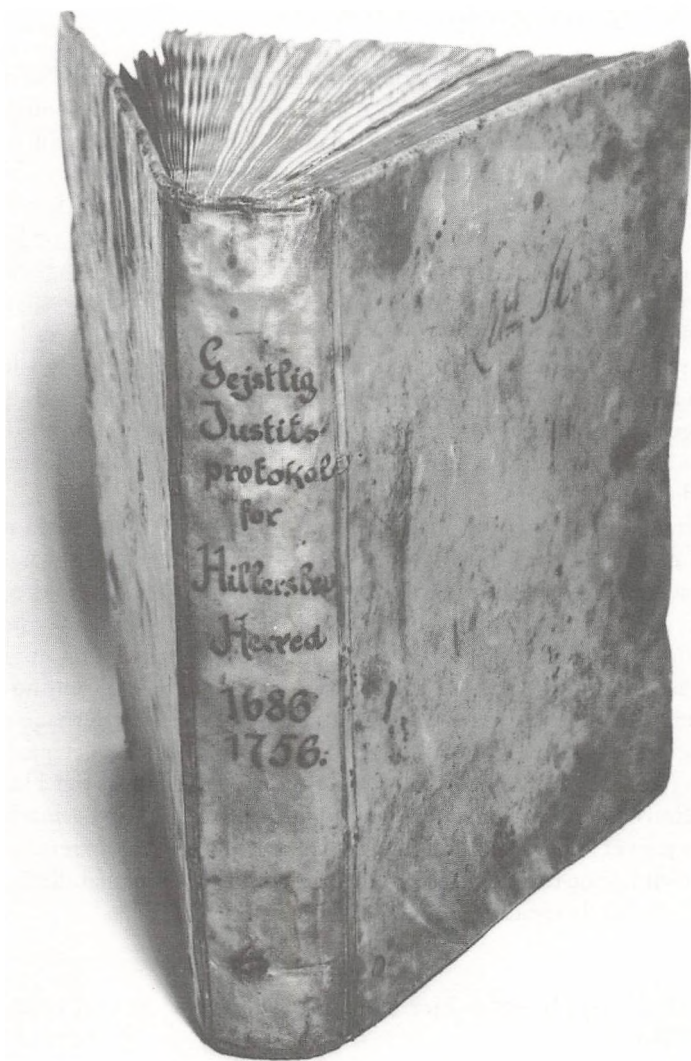 Gejstlig
Justits-
protokol
for
Hillerslev
Herred
1686
1756.